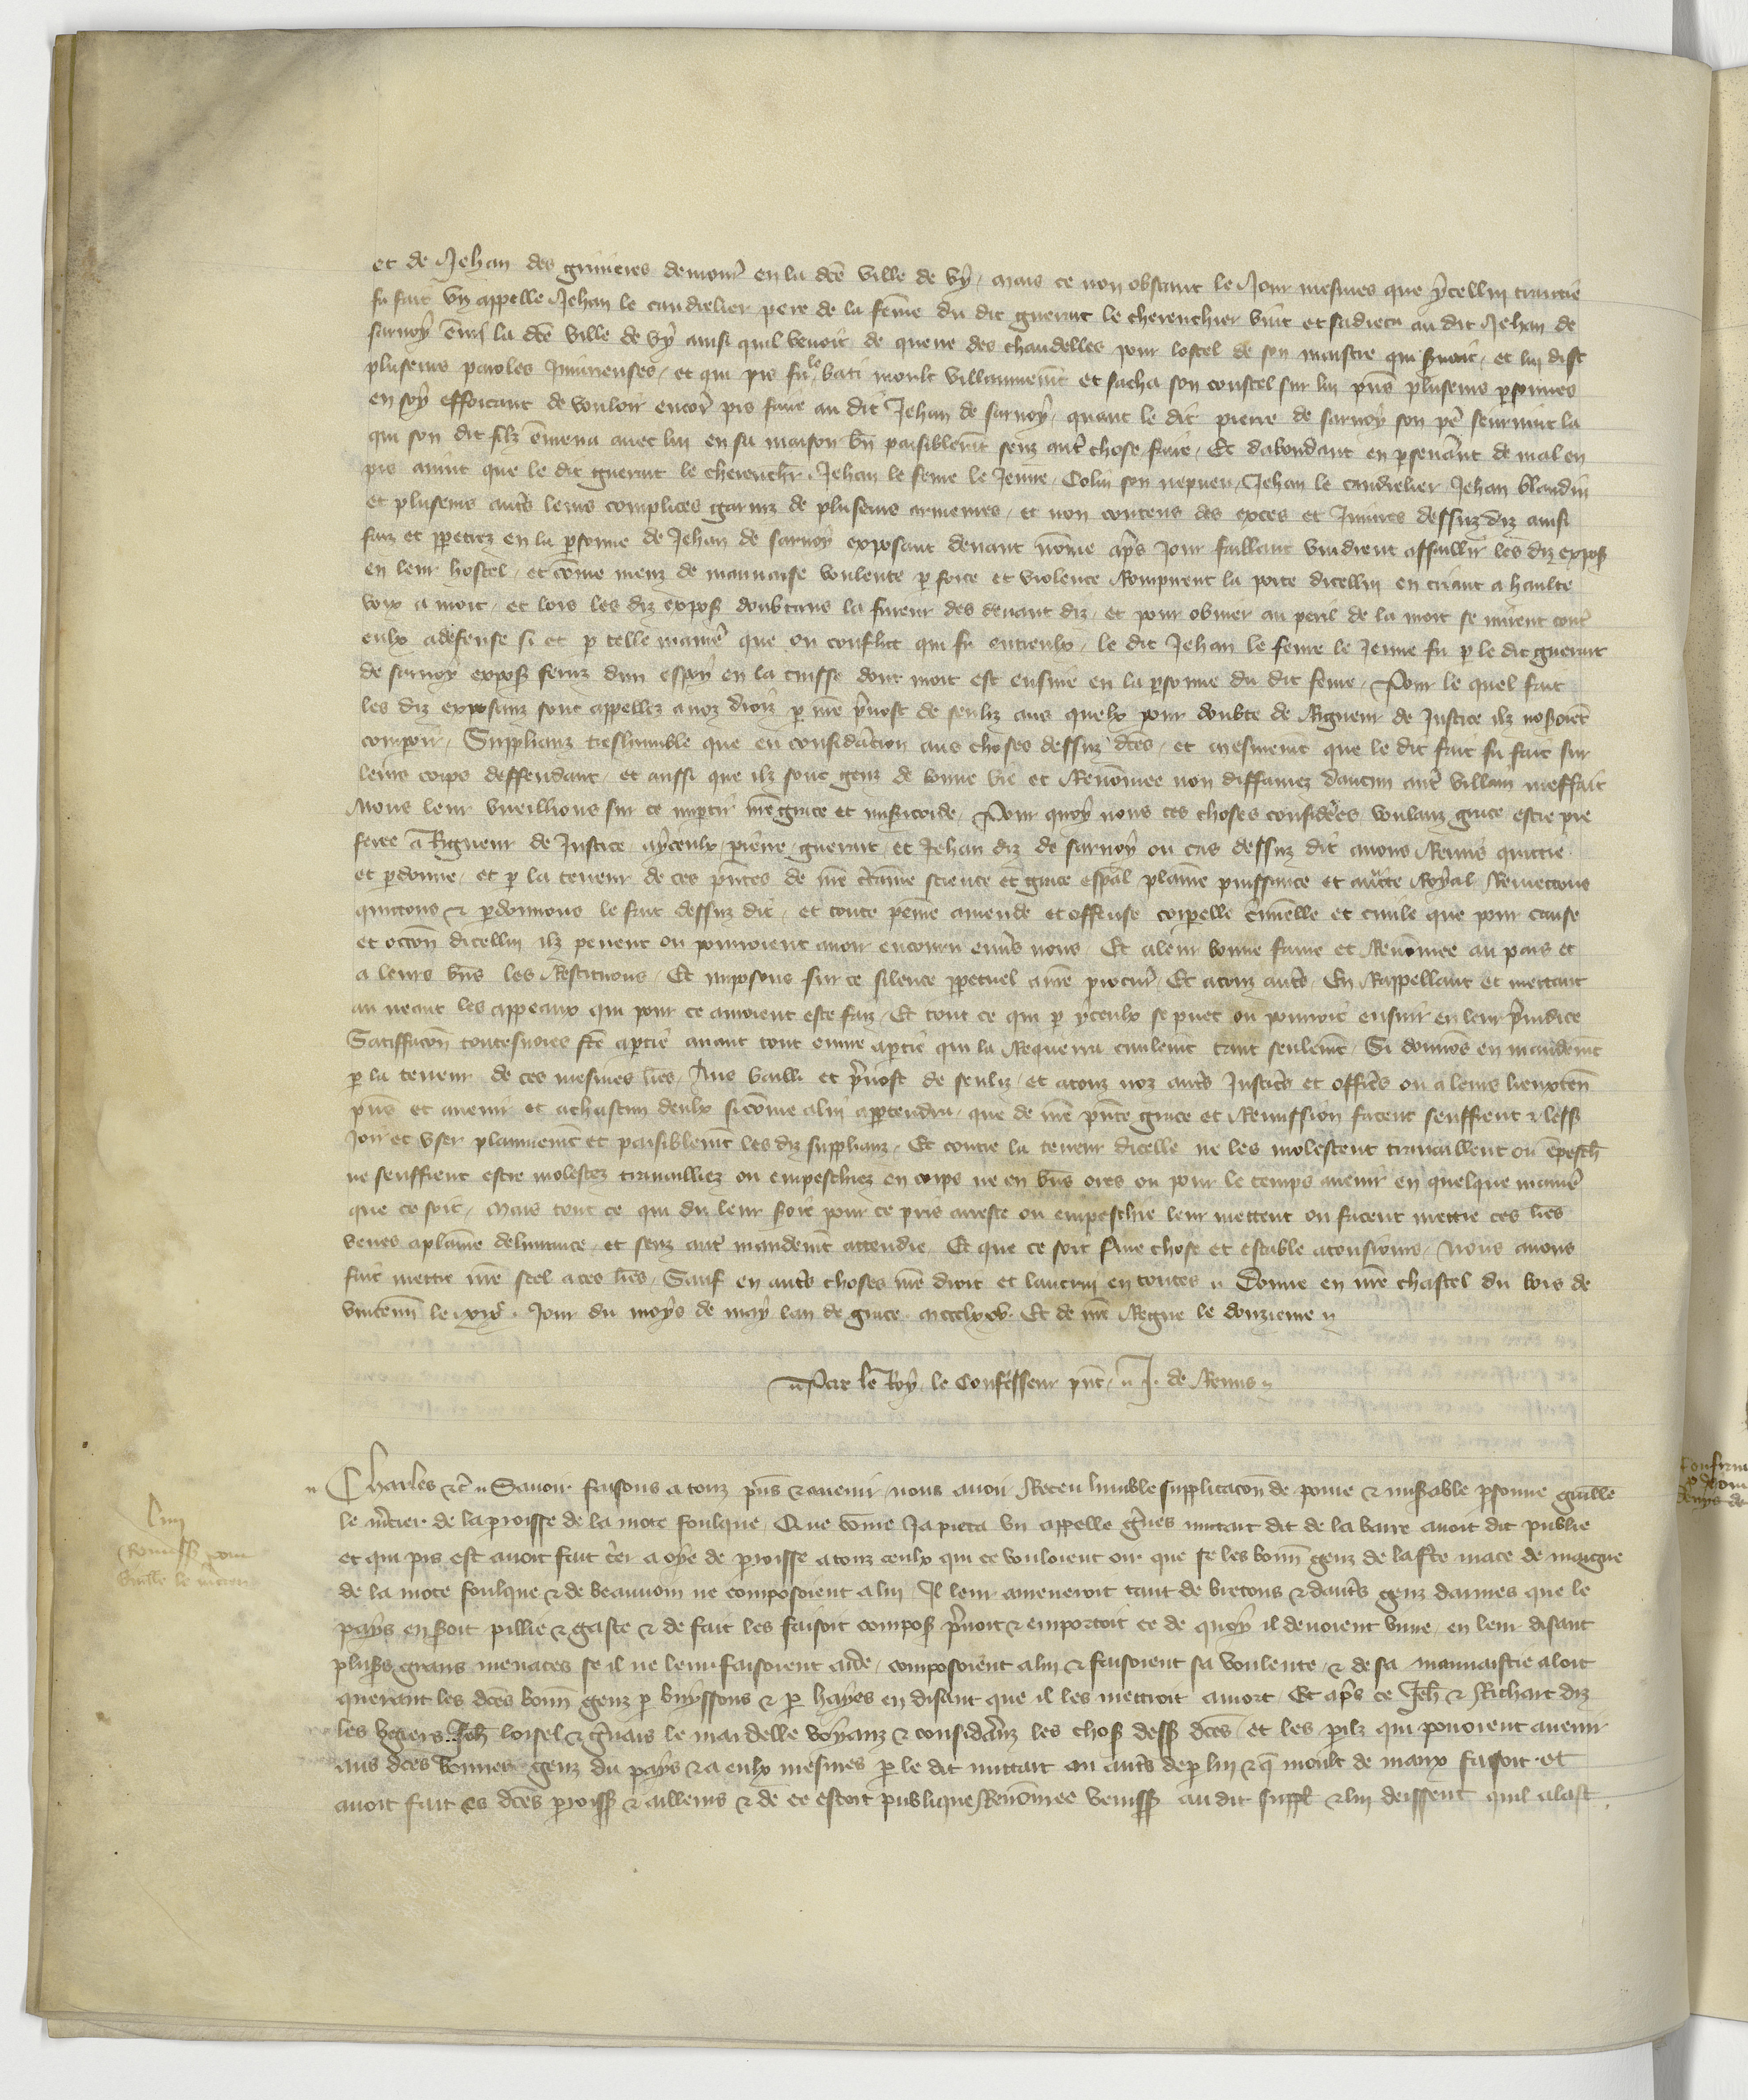 et de Jehan des grimeres demour̄ en la dc̄e ville de vy / mais ce non obstant le Jour mesmes que ycelluy traictie
fu fait vn appelle Jehan le candrelier pere de la fem̄e du dit guerart le cherenchier vint et sadreca au dit Jehan de
sarnoy em̄i la dc̄e ville de vy ainsi quil venoit de querre des chandelles pour lostel de son maistre qui seruoit / et lui dist
pluseurs paroles Iniurieuses / et qui pis fu le bati moult villainnem̄t et sacha son coustel sur lui pn̄s pluseurs ꝑsonnes
en soy efforcant de vouloir encor̄ pis faire au dit Jehan de sarnoy / quant le dit pierre de sarnoy son pe᷑ seuruint la
qui son dit filz em̄mena auec lui en sa maison bn̄ paisiblem̄t senz aut᷑ chose faire / Et dabondant en ꝑseuer̄ant de mal en
pis auint que le dit guerart le cherench᷑ . Jehan le feure le Jeune / Colin son nepueu / Jehan le candrelier Jehan blandin
et pluseurs aut᷑s leurs complices garniz de pluseurs armeures / et non contens des exces et Iniures dessuz diz ainsi
faiz et ꝑpetrez en la ꝑsonne de Jehan de sarnoy exposant deuant nom̄e ap̄s Jour faillant vindrent assaillir les diz expos̄
en leur hostel / et com̄e menz de mauuaise voulente ꝑ force et violence Rompirent la porte dicellui en criant a haulte
voix a mort / et lors les diz expos̄ doubtans la fureur des deuant diz / et pour obuier au peril de la mort se mirent cont᷑
eulx a defense si et ꝑ telle manier̄ que ou conflict qui fu entreulx / le dit Jehan le feure le Jeune fu ꝑ le dit guerart
de sarnoy expos̄ feruz dun espoy en la cuisse dont mort est ensuie en la ꝑsonne du dit feure / Pour le quel fait
les diz exposanz sont appellez a noz droiz ꝑ nr̄e p̄uost de senliz aus quelx pour doubte de Rigueur de Justice ilz nosoiēt
comparoir / Supplianz treshumble que eu consid᷑acion aus choses dessuz dc̄es / et mesmem̄t que le dit fait fu fait sur
leurs corps deffendant / et aussi que ilz sont genz de bonne vie et Renom̄ee non diffamez daucun aut᷑ villain meffait
Nous leur vueillions sur ce imꝑtir nr̄e grace et misericorde / Pour quoy nous ces choses consid᷑es / voulanz grace estre pre
feree a Rigueur de Justice / a yceulx pierre guerart et Jehan diz de sarnoy ou cas dessuz dit auons Remis quittie
et ꝑdonne / et ꝑ la teneur de ces pn̄tes de nr̄e c̄taine science et grace esp̄al plaine puissance et auc̄te Royal Remettons
quittons & ꝑdonnons le fait dessuz dit / et toute peine amende et offense corporelle c̄minelle et ciuile que pour cause
et occōn dicellui ilz peuent ou pourroient auoir encouru enuers nous / Et a leur bonne fame et Renom̄ee au pais et
a leurs bn̄s les Restituons / Et imposons sur ce silence ꝑpetuel a nr̄e procur̄ / Et a touz aut᷑s / En Rappellant et mettant
au neant les appeaux qui pour ce auroient este faiz / Et tout ce qui ꝑ yceulx se puet ou pourroit ensuir en leur p̄iudice
Satiffac̄on toutesuoies fc̄e a ꝑtie auant tout euure a ꝑtie qui la Requerra ciuilem̄t tant seulem̄t / Si donnōs en mandem̄t
ꝑ la teneur de ces mesmes lr̄es / Aus bailli et p̄uost de senliz / et a touz noz aut᷑s Justic̄s et offic̄s ou a leurs lieuxten̄
pn̄s et auenir et a chascun deulx si com̄e a lui appartendra / que de nr̄e pn̄te grace et Remission facent seuffrent & less̄
Joir et vser plainnem̄t et paisiblem̄t les diz supplianz / Et contre la teneur dicelle ne les molestent trauaillent ou em̄pesch̄
ne seuffrent estre molestez trauaillez ou empeschiez en corps ne en bn̄s ores ou pour le temps auenir en quelque manier̄
que ce soit / Mais tout ce qui du leur soit pour ce pris arreste ou empeschie leur mettent ou facent mettre ces lr̄es
veues a plaine deliurance / et senz aut᷑ mandem̄t attendre / Et que ce soit ferme chose et estable a tousiours / Nous auons
fait mettre nr̄e scel a ces lr̄es / Sauf en aut᷑s choses nr̄e droit et lautrui en toutes // Donne en nr̄e chastel du bois de
vincenn̄ le xix.e Jour du moys de may lan de grace . mccclxxv . Et de nr̄e Regne le douzieme //
// Par le Roy le Confesseur pn̄t // J. de Remis //
// Charles &c̄ // Sauoir faisons a touz pn̄s & auenir nous auoir Receu humble supplicac̄on de poure & mis̄able ꝑsonne guill̄e
le m̄cier de la ꝑoisse de la mote foulque / Que com̄e Ja pieca vn appelle g᷑ues mittart dit de la barre auoit dit publie
et qui pis est auoit fait c̄ier a oye de ꝑoisse a touz ceulx qui ce vouloient oir que se les bonn̄ genz de la fc̄e mace de maigne
de la mote foulque & de beauuoin ne composoient a lui / Il leur ameneroit tant de bretons & daut᷑s genz darmes que le
pays en seroit pillie & gaste & de fait les faisoit compos̄ p̄noit & emportoit ce de quoy il deuoient viure / en leur disant
plus̄s grans menaces se il ne leur faisoient aide / composoient a lui & faisoient sa voulente / & de sa mauuaistie aloit
querant les dc̄es bonn̄ genz ꝑ buyssons & ꝑ hayes en disant que il les mettroit a mort / Et ap̄s ce Jeh̄ & Richart diz
les begers . Jeh̄ loisel & g᷑uais le mardelle voyanz & consid᷑anz les chos̄ dess̄ dc̄es / et les ꝑilz qui pouoient auenir
aus dc̄es bonnes genz du pays & a eulx mesmes ꝑ le dit mittart ou aut᷑s de ꝑ lui & q̄ moult de maux faisoit et
auoit fait es dc̄es ꝑoiss̄ & ailleurs & de ce estoit publique Renom̄ee veniss̄ au dit suppl̄ & lui deissent quil alast
Remiss̄ pour
Guill̄e le m̄cier